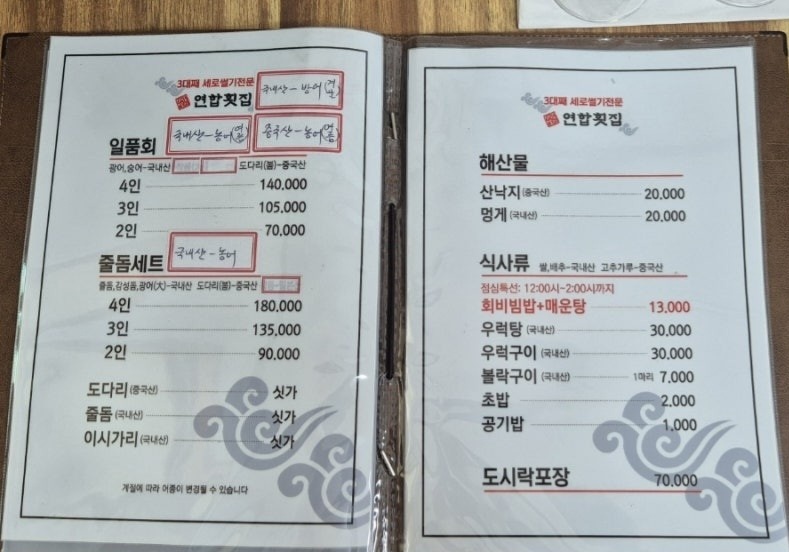 3대째 세로썰기전문
연합횟집
국내산-방어(겨울)
국내산-농어(여름)
중국산-농어(여름)
일품회
광어,숭어-국내산 도다리(돌)-중국산
4인 140,000
3인 105,000
2인 70,000
줄돔세트
국내산-농어
줄돔,감성돔,광어(大)-국내산 도다리(돌)-중국산
4인 180,000
3인 135,000
2인 90,000
도다리(중국산) 싯가
줄돔(국내산) 싯가
이시가리(국내산) 싯가
계절에 따라 어종이 변경될 수 있습니다
3대째 세로썰기전문
연합횟집
해산물
산낙지(중국산) 20,000
멍게(국내산) 20,000
식사류 쌀,배추-국내산 고추가루-중국산
점심특선: 12:00시~2:00시까지
회비빔밥+매운탕 13,000
우럭탕(국내산) 30,000
우럭구이(국내산) 30,000
볼락구이(국내산) 1마리 7,000
초밥 2,000
공기밥 1,000
도시락포장 70,000